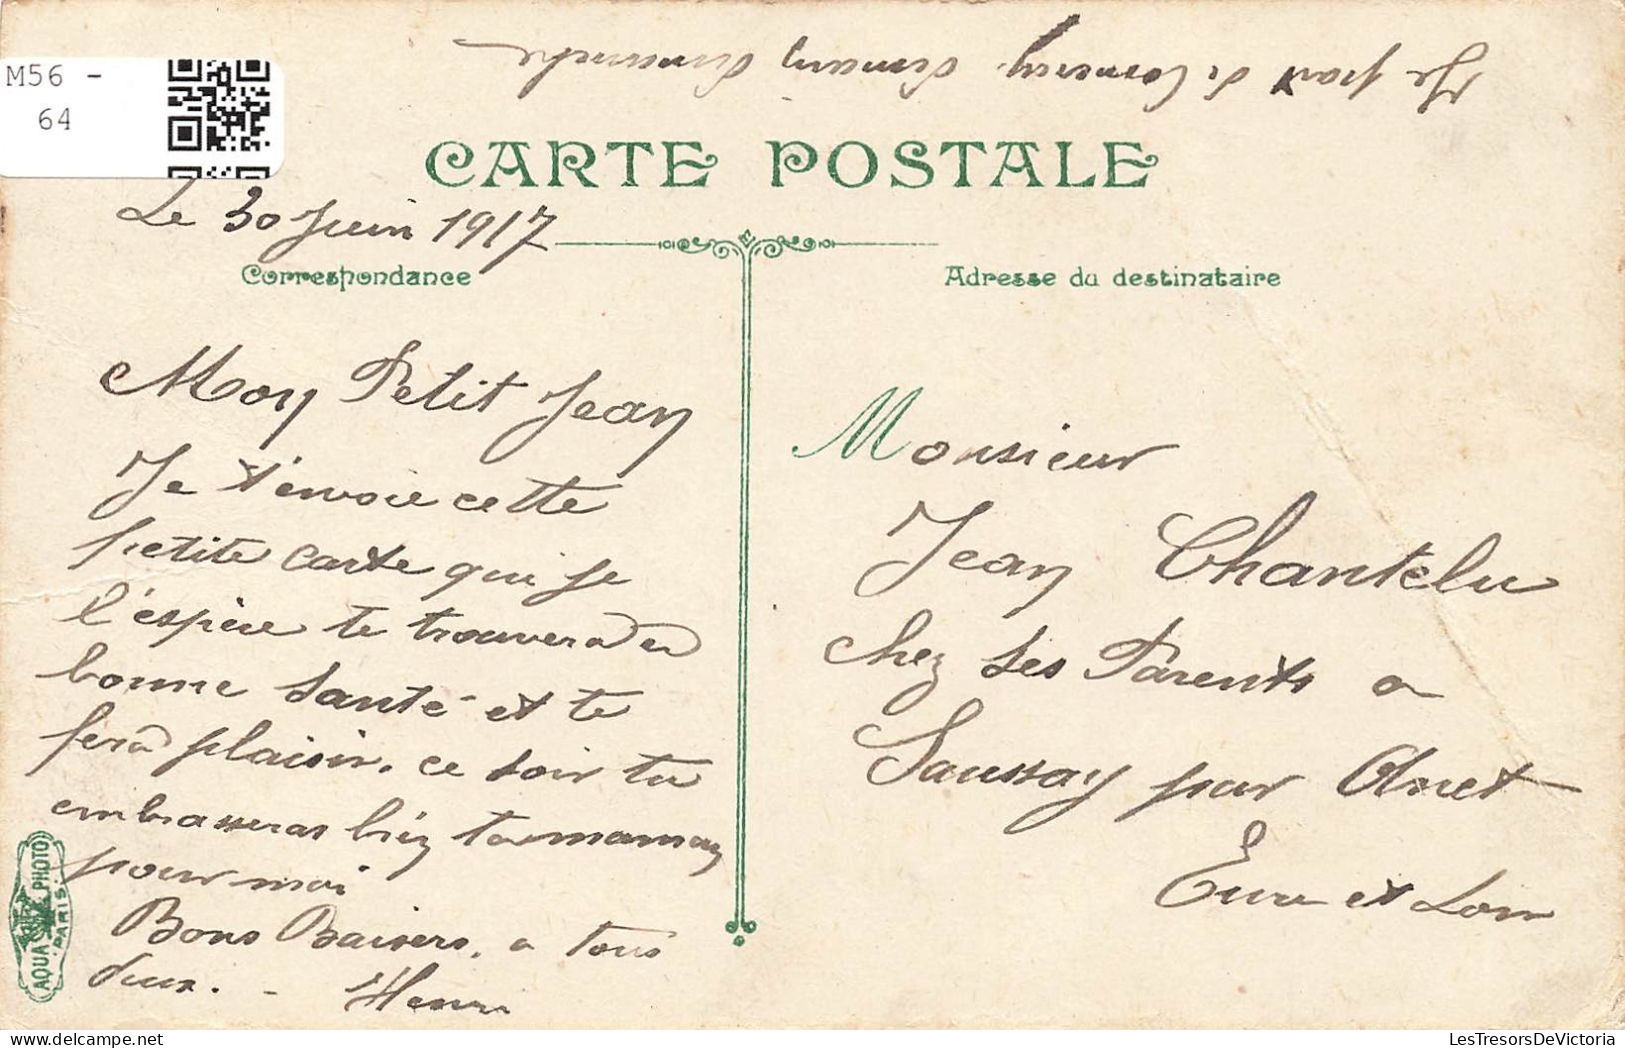 M56 -
64
Je part de Cormery demain dimanche
CARTE POSTALE
Le 30 Juin 1917
Correspondance
Adresse du destinataire
Mon Petit Jean
Je t'envoie cette
petite carte qui je
l'espère te trouvera en
bonne santé et te
fera plaisir. ce soir tu
embrasseras bien ta maman
pour moi
Bons Baisers. a tous
deux. - Henri
Monsieur
Jean Chantelu
chez ses Parents a
Saussay par Anet
Eure et Loir
AQUA PHOTO
PARIS
LesTresorsDeVictoria